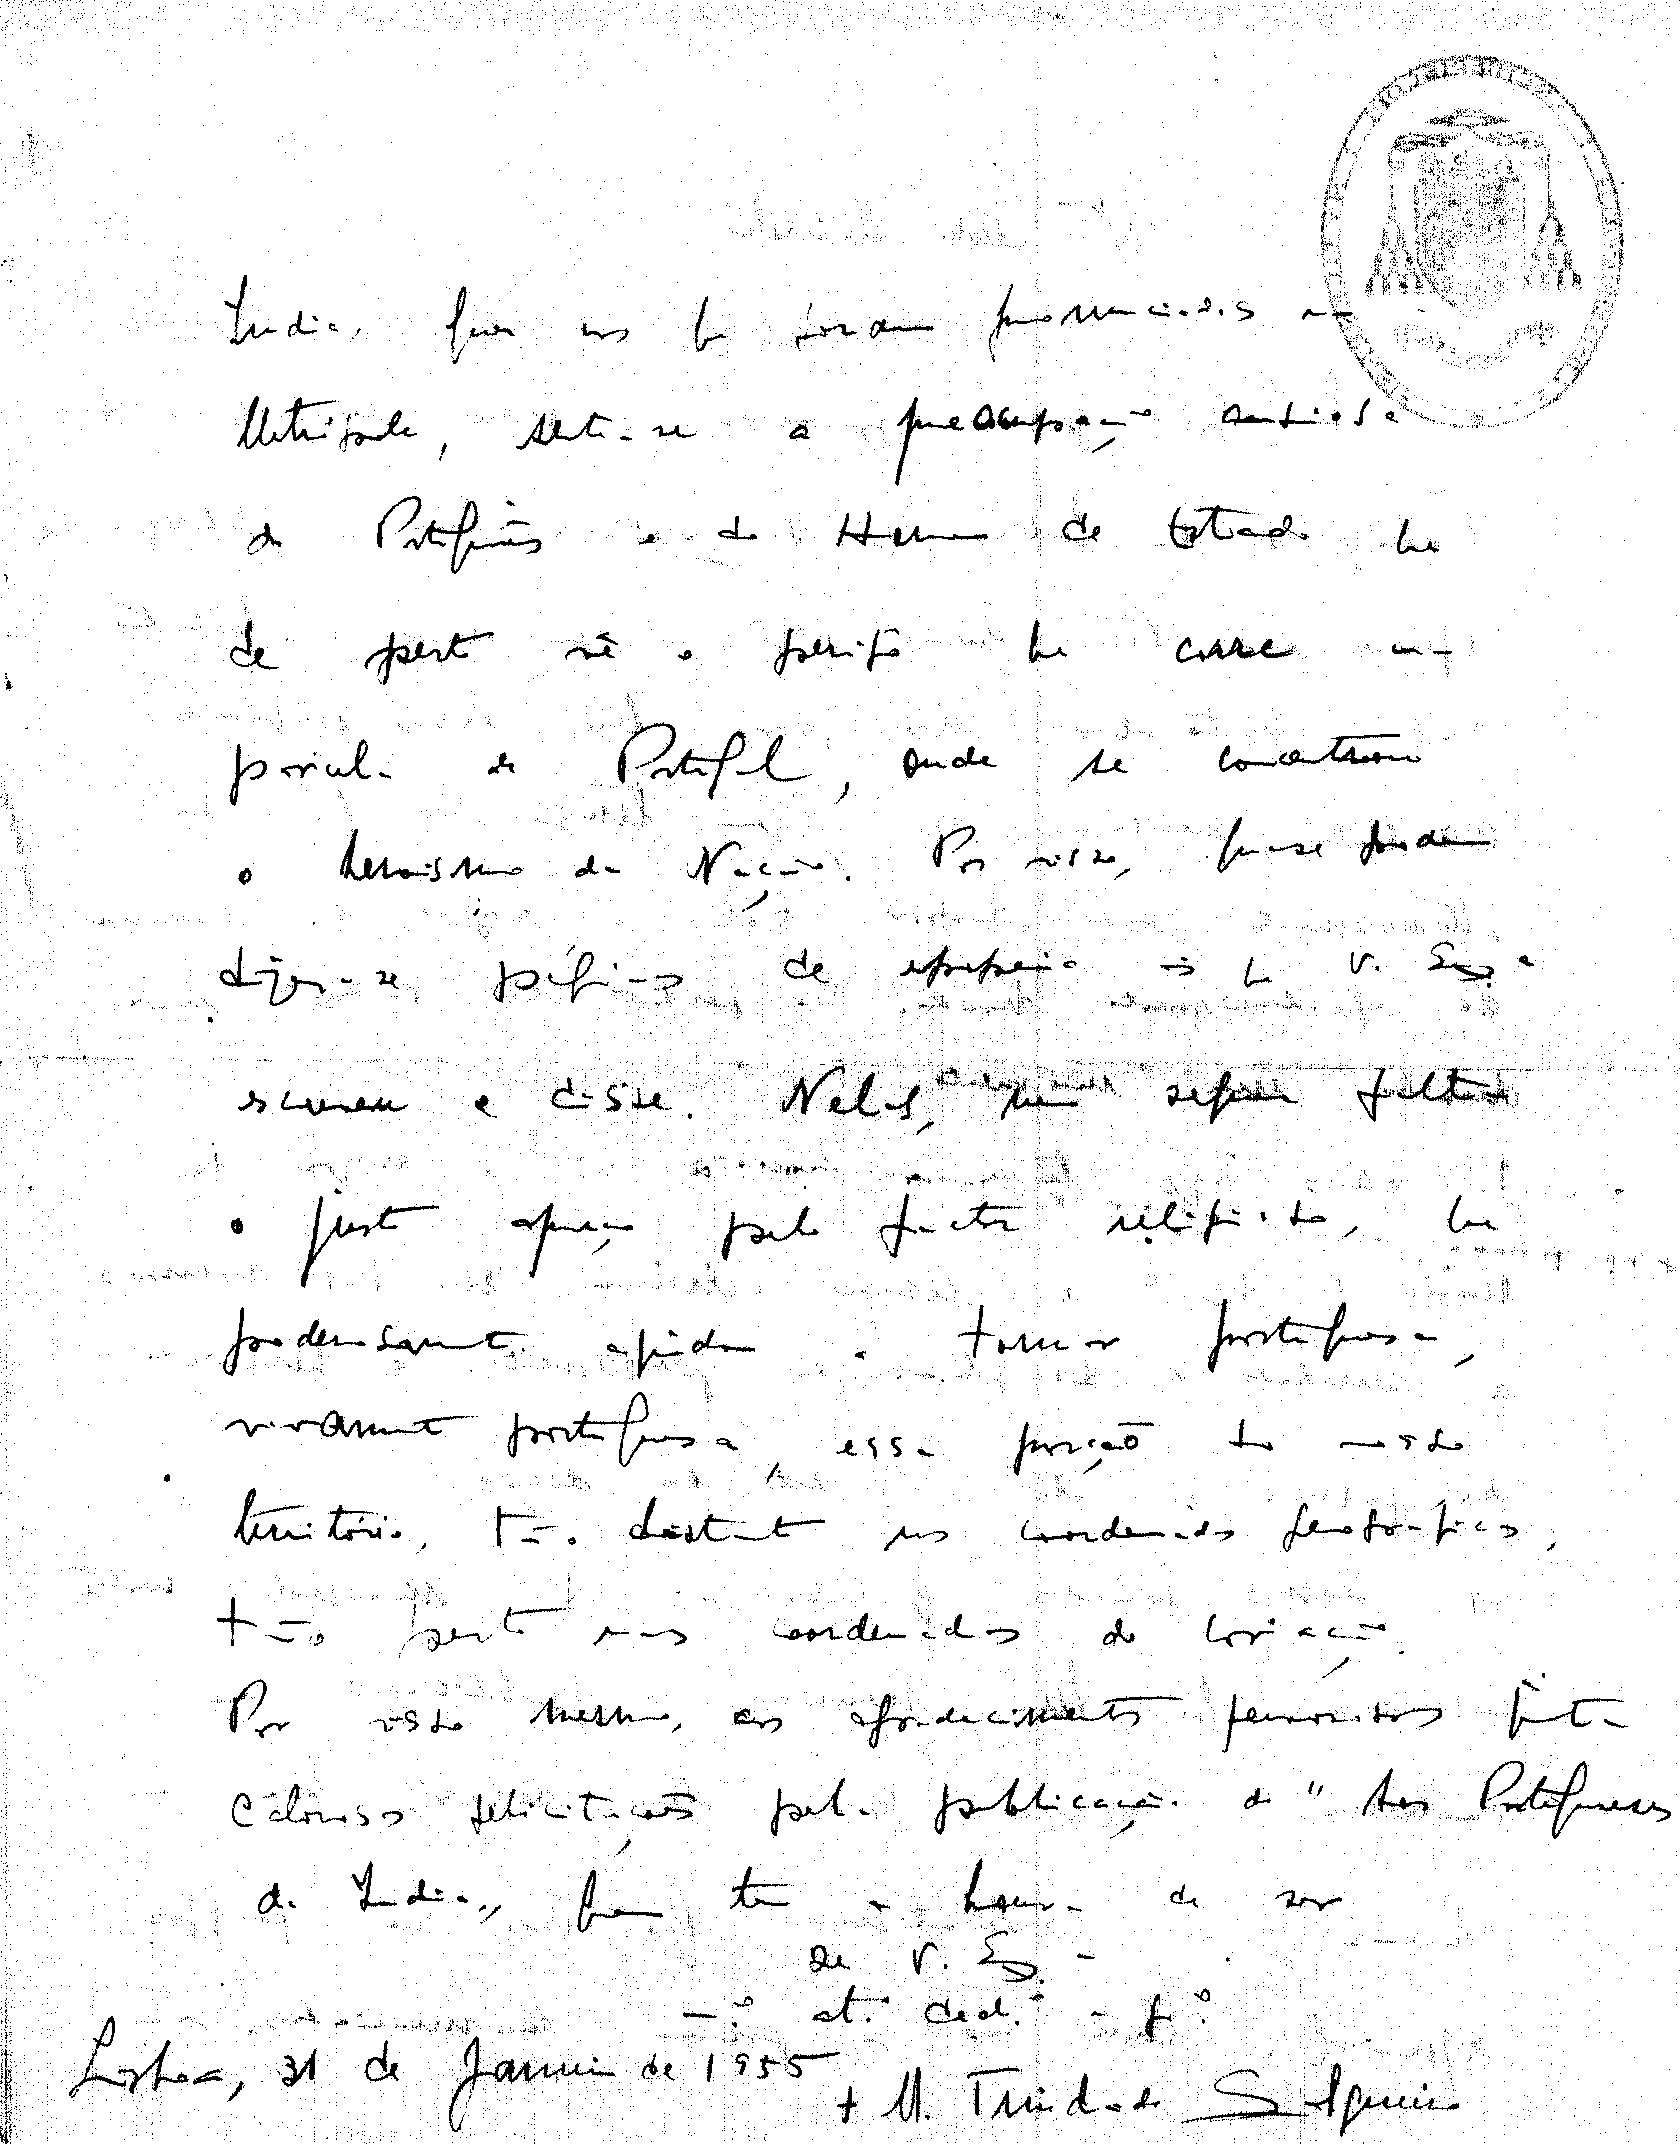 India, quer nos que foram pronunciados na
Metrópole, sente-se a preocupação ansiosa
do Português e do Homem de Estado que
de perto vê o perigo que corre uma
parcela de Portugal, onde se concentrou
o heroísmo da Nação. Por isso, quase podem
dizer-se páginas de epopeia as que V. Ex.ª
escreveu e disse. Nelas, nem sequer faltou
o justo apreço pelo factor religioso, que
poderosamente ajudou a tornar portuguesa,
vivamente portuguesa, essa porção do nosso
território, tão distante nas coordenadas geográficas,
tão perto nas coordenadas do coração.
Por isso mesmo, aos agradecimentos penhorados junta
calorosas felicitações pela publicação de "Aos Portugueses
da India", quem tem a honra de ser
de V. Ex.ª
m.º at.º ded.º
Lisboa, 31 de Janeiro de 1955
+ M. Trindade Salgueiro